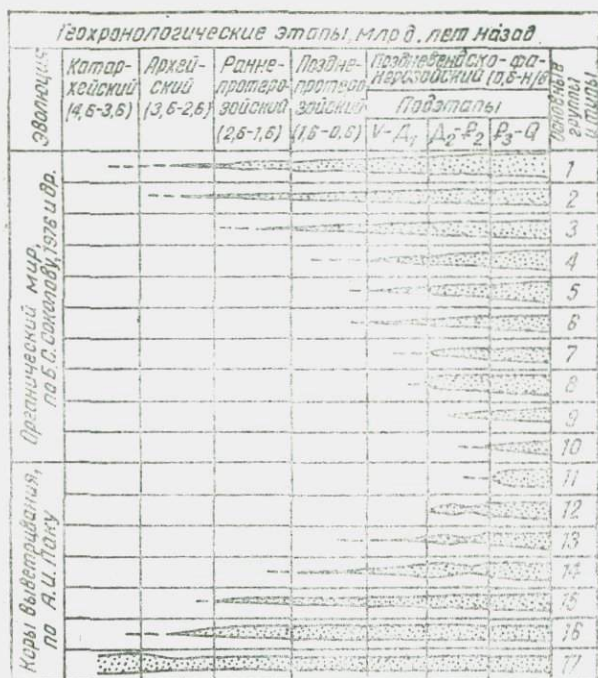 Геохронологические этапы, млрд. лет назад
Эволюция
Катар-
хейский
(4,6-3,6)
Архей-
ский
(3,6-2,6)
Ранне-
протеро-
зойский
(2,6-1,6)
Поздне-
протеро-
зойский
(1,6-0,6)
Поздневендско-фа-
нерозойский (0,6-н/в
Подэтапы
V-Д₁
Д₂-Р₂
Р₃-Q
Основные
группы
и типы
Органический мир,
по Б.С. Соколову, 1976 и др.
1
2
3
4
5
6
7
8
9
10
Коры выветривания,
по А.И. Паку
11
12
13
14
15
16
17